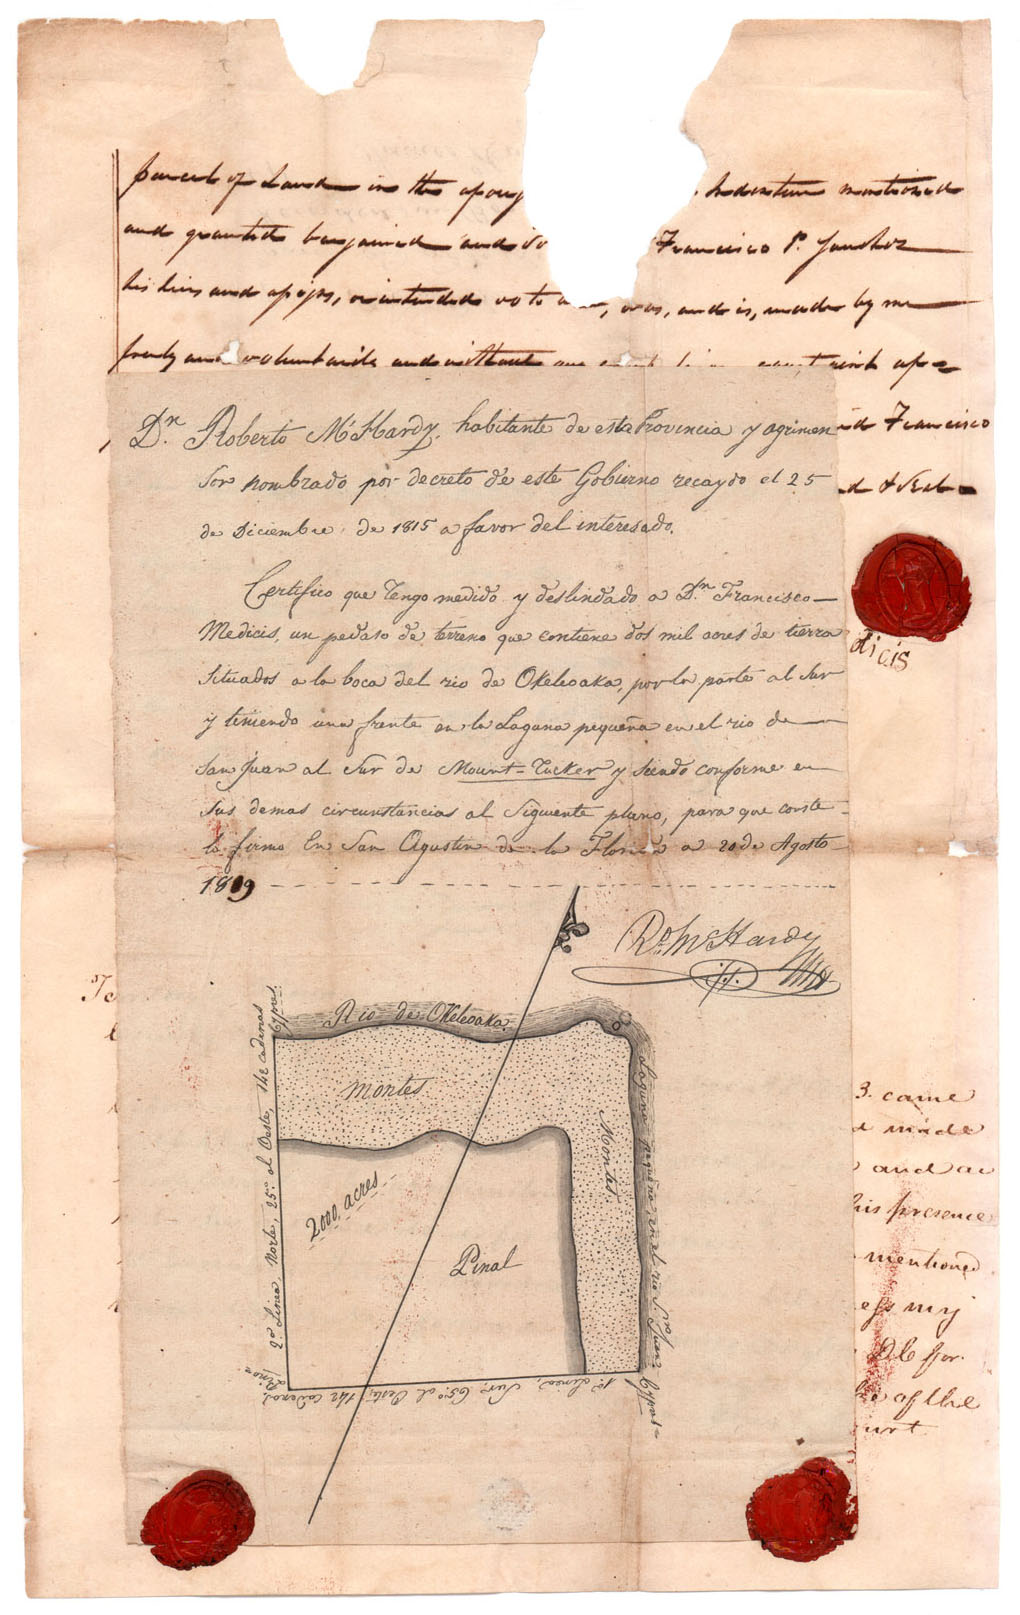 parcel of Land in the aforeg hdenture mentioned
and granted bargained and so Francisco P. Sanchez
his heirs and assigns, or intended so to , was, and is, made by me
freely and voluntarily and without any
id Francisco
d & Seal
dicis
Dn. Roberto McHardy, habitante de esta Provincia y agrimen
sor nombrado por decreto de este Gobierno recaydo el 25
de Diciembre de 1815 a favor del interesado.
Certifico que tengo medido y deslindado a Dn. Francisco
Medicis, un pedaso de terreno que contiene dos mil acres de tierra
situados a la boca del rio de Okelwaka, por la parte al Sur
y teniendo una frente en la Laguna pequeña en el rio de
San Juan al Sur de Mount-Tucker y siendo conforme en
sus demas circunstancias al Siguiente plano, para que conste
lo firmo En San Agustin de la Florida a 20 de Agosto
1819
Ro. McHardy
Rio de Okelwaka
Cypres.
Montes
Montes
Laguna pequeña en el rio Sn. Juan
2000 acres
Pinal
2a Linea, Norte, 25o al Oeste, 142 cadenas
Pino
1a Linea, Sur, 65o al Oeste, 142 cadenas
Cypres
3. came
d made
and ac
his presence
mentioned
ess my
of the
urt